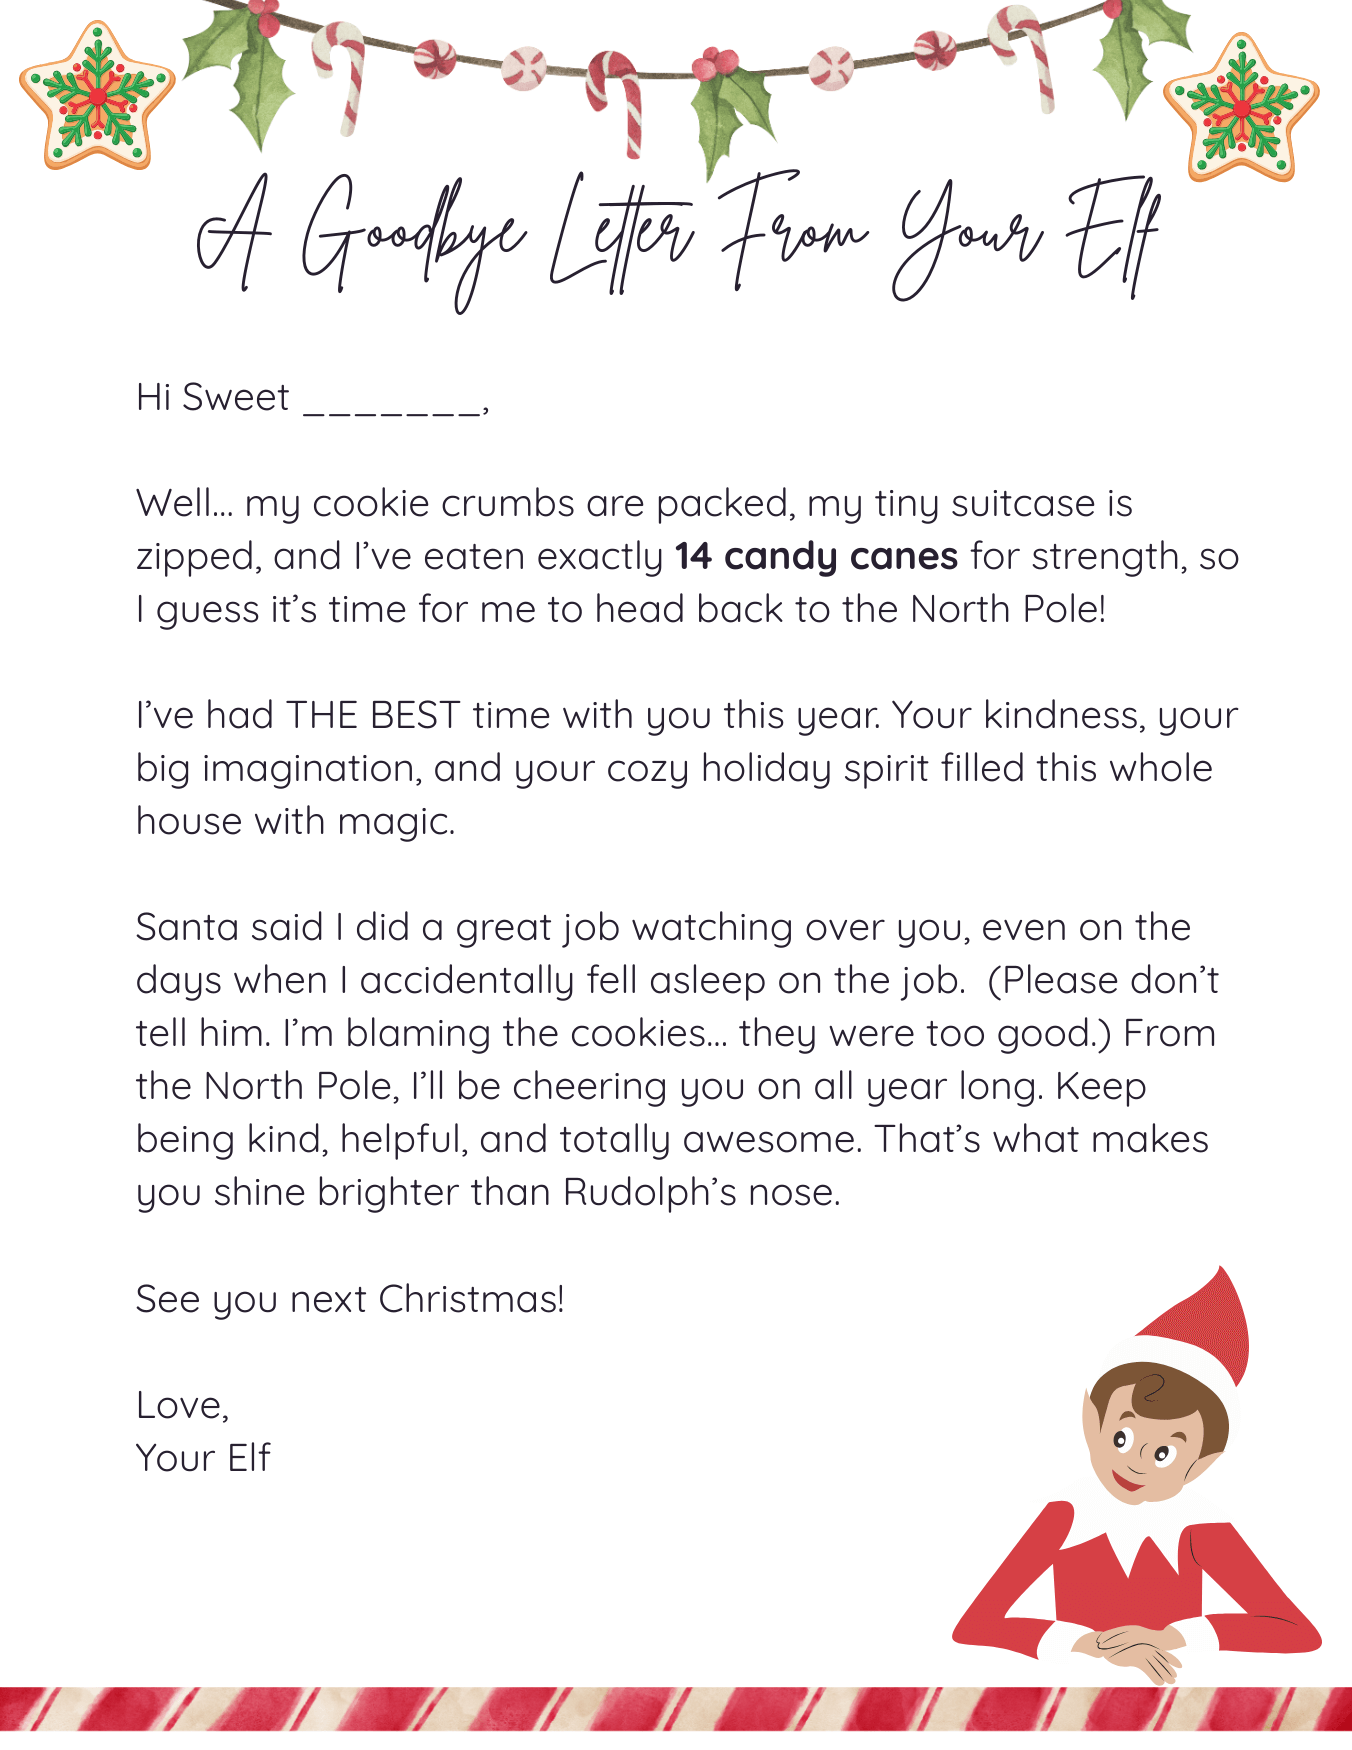 A Goodbye Letter From Your Elf
Hi Sweet _______,
Well... my cookie crumbs are packed, my tiny suitcase is
zipped, and I’ve eaten exactly 14 candy canes for strength, so
I guess it’s time for me to head back to the North Pole!
I’ve had THE BEST time with you this year. Your kindness, your
big imagination, and your cozy holiday spirit filled this whole
house with magic.
Santa said I did a great job watching over you, even on the
days when I accidentally fell asleep on the job.  (Please don’t
tell him. I’m blaming the cookies... they were too good.) From
the North Pole, I’ll be cheering you on all year long. Keep
being kind, helpful, and totally awesome. That’s what makes
you shine brighter than Rudolph’s nose.
See you next Christmas!
Love,
Your Elf